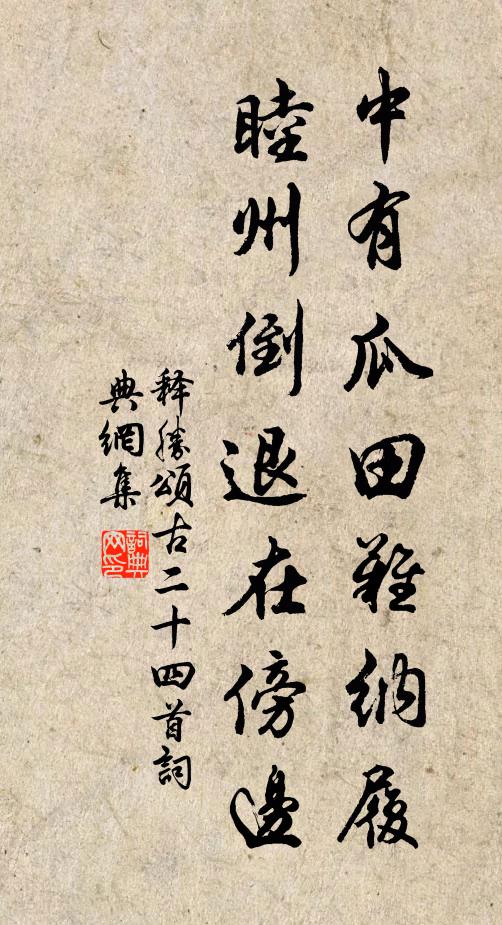 中有瓜田難納履
睦州倒退在傍邊
释勝頌古二十四首詞
典網集
詞典網印